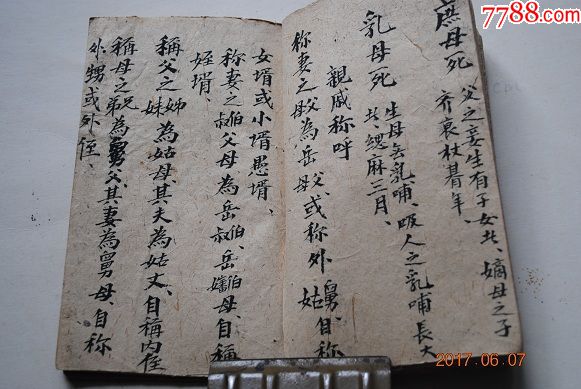 庶母死 父之妾生有子女者、嫡母之子
齊衰杖朞年、
乳母死 生母去乳哺、吸人之乳哺長大
者、緦麻三月、
親戚称呼
称妻之父母為岳父母、或称外舅、姑、自称
女壻或小壻愚壻、
称妻之伯叔父母為岳伯叔、岳伯嬸母、自称
姪壻、
稱父之姊妹為姑母、其夫為姑丈、自称内侄
稱母之兄弟為舅父、其妻為舅母、自称
外甥或外侄、
7788.com
2017.06.07